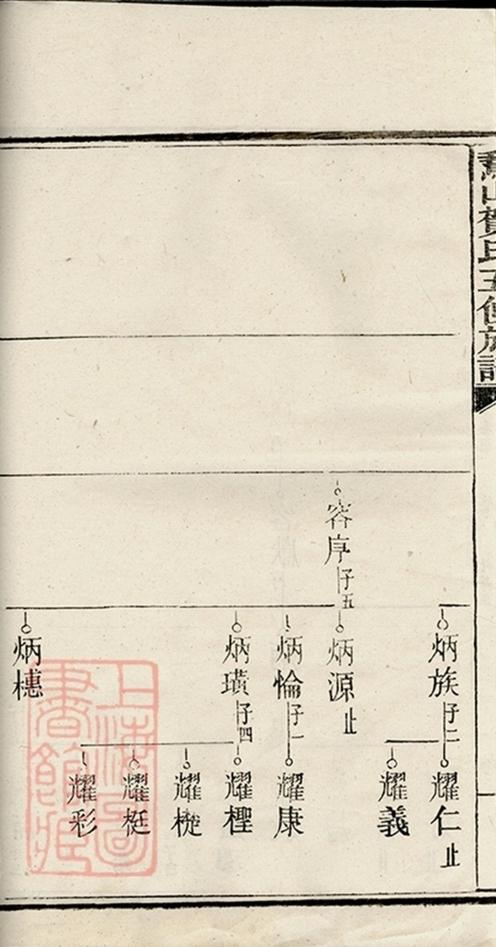 山賀氏五修族譜
容序
子五
炳族
子二
炳源
止
炳惀
子一
炳璜
子四
炳櫶
耀仁
止
耀義
耀康
耀檉
耀樅
耀梃
耀彩
上海圖書館藏